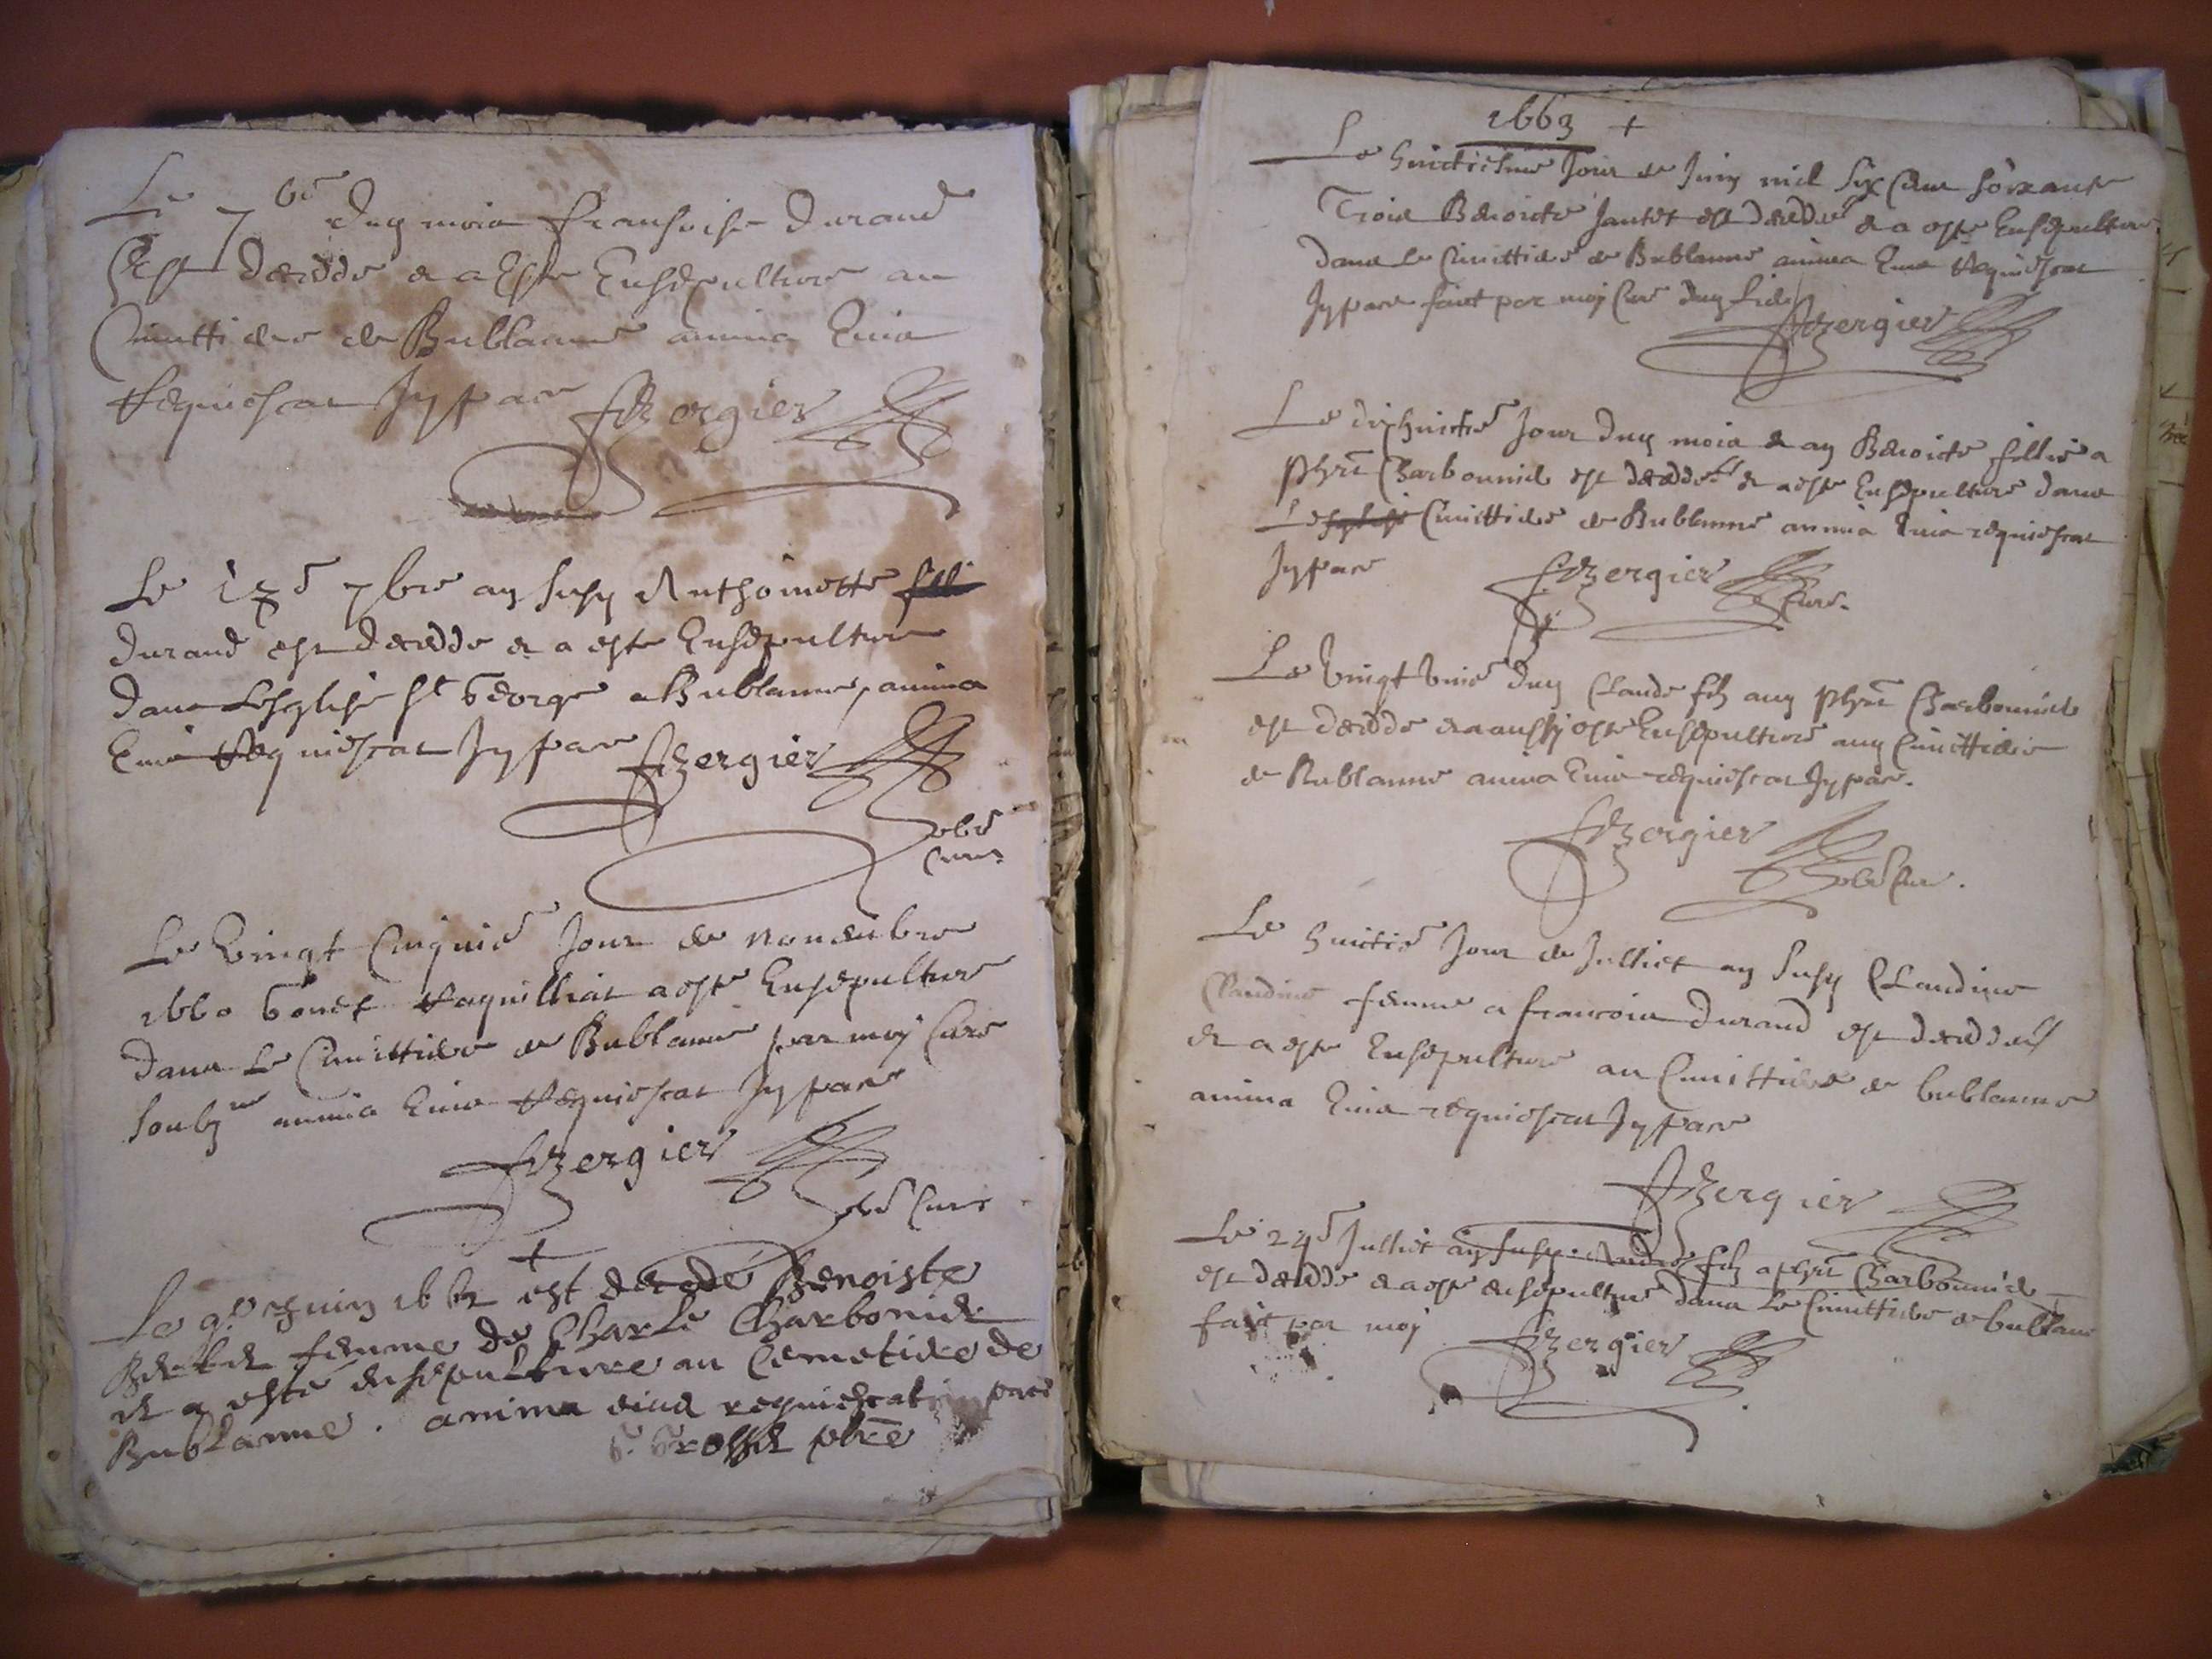 Le 7 bre duy mois Fransoise Durand
est decede et a este ensepulture au
Cimittiere de Bublanne anima Eius
Requiescat Jn pace FBergier
Le 13e 7bre an susy Anthoinette
Durand est decede et a este Ensepulture
dans Lesglise St George a Bublanne, anima
Eius Requiescat Jn pace FBergier
Cure
Le Vingt Cinquie Jour de Nouembre
1660 a este Ensepulture
dans Le Cimittiere de Bublanne par moy Cure
soubz ne anima Eius Requiescat Jn pace
FBergier
Cure
Le 9e est decede Benoiste
femme de Charle Charbonier
et a este ensepulture au Cemetiere de
Bublanne. anima eius requiescat in pace
pbre
1663
Le huictiesme Jour de Juin mil six Cens soixante
Trois Benoicte est decede et a este Ensepulture
dans Le Cimittiere de Bublanne anima Eius Requiescat
Jn pace faict par moy Cure
FBergier
Le dixhuictie Jour duy mois et an Benoicte fillie a
Charbonnier est decede et a este Ensepulture dans
Cimittiere de Bublanne anima Eius requiescat
Jn pace FBergier
Cure.
Le Vingt Duy Claude filz Charbonnier
est decede et a aussy este Ensepulture auy Cimittiere
de Bublanne anima Eius requiescat Jn pace.
FBergier
Cure.
Le huictie Jour de Julliet an susy Claudine
Claudine femme a Francois Durand est decede
et a este Ensepulture au Cimittiere de bublanne
anima Eius requiescat Jn pace
FBergier
Le 24e Julliet an susy Andre filz a Charbonnier
est decede et a este ensepulture dans Le Cimittiere de bublane
faict par moy FBergier